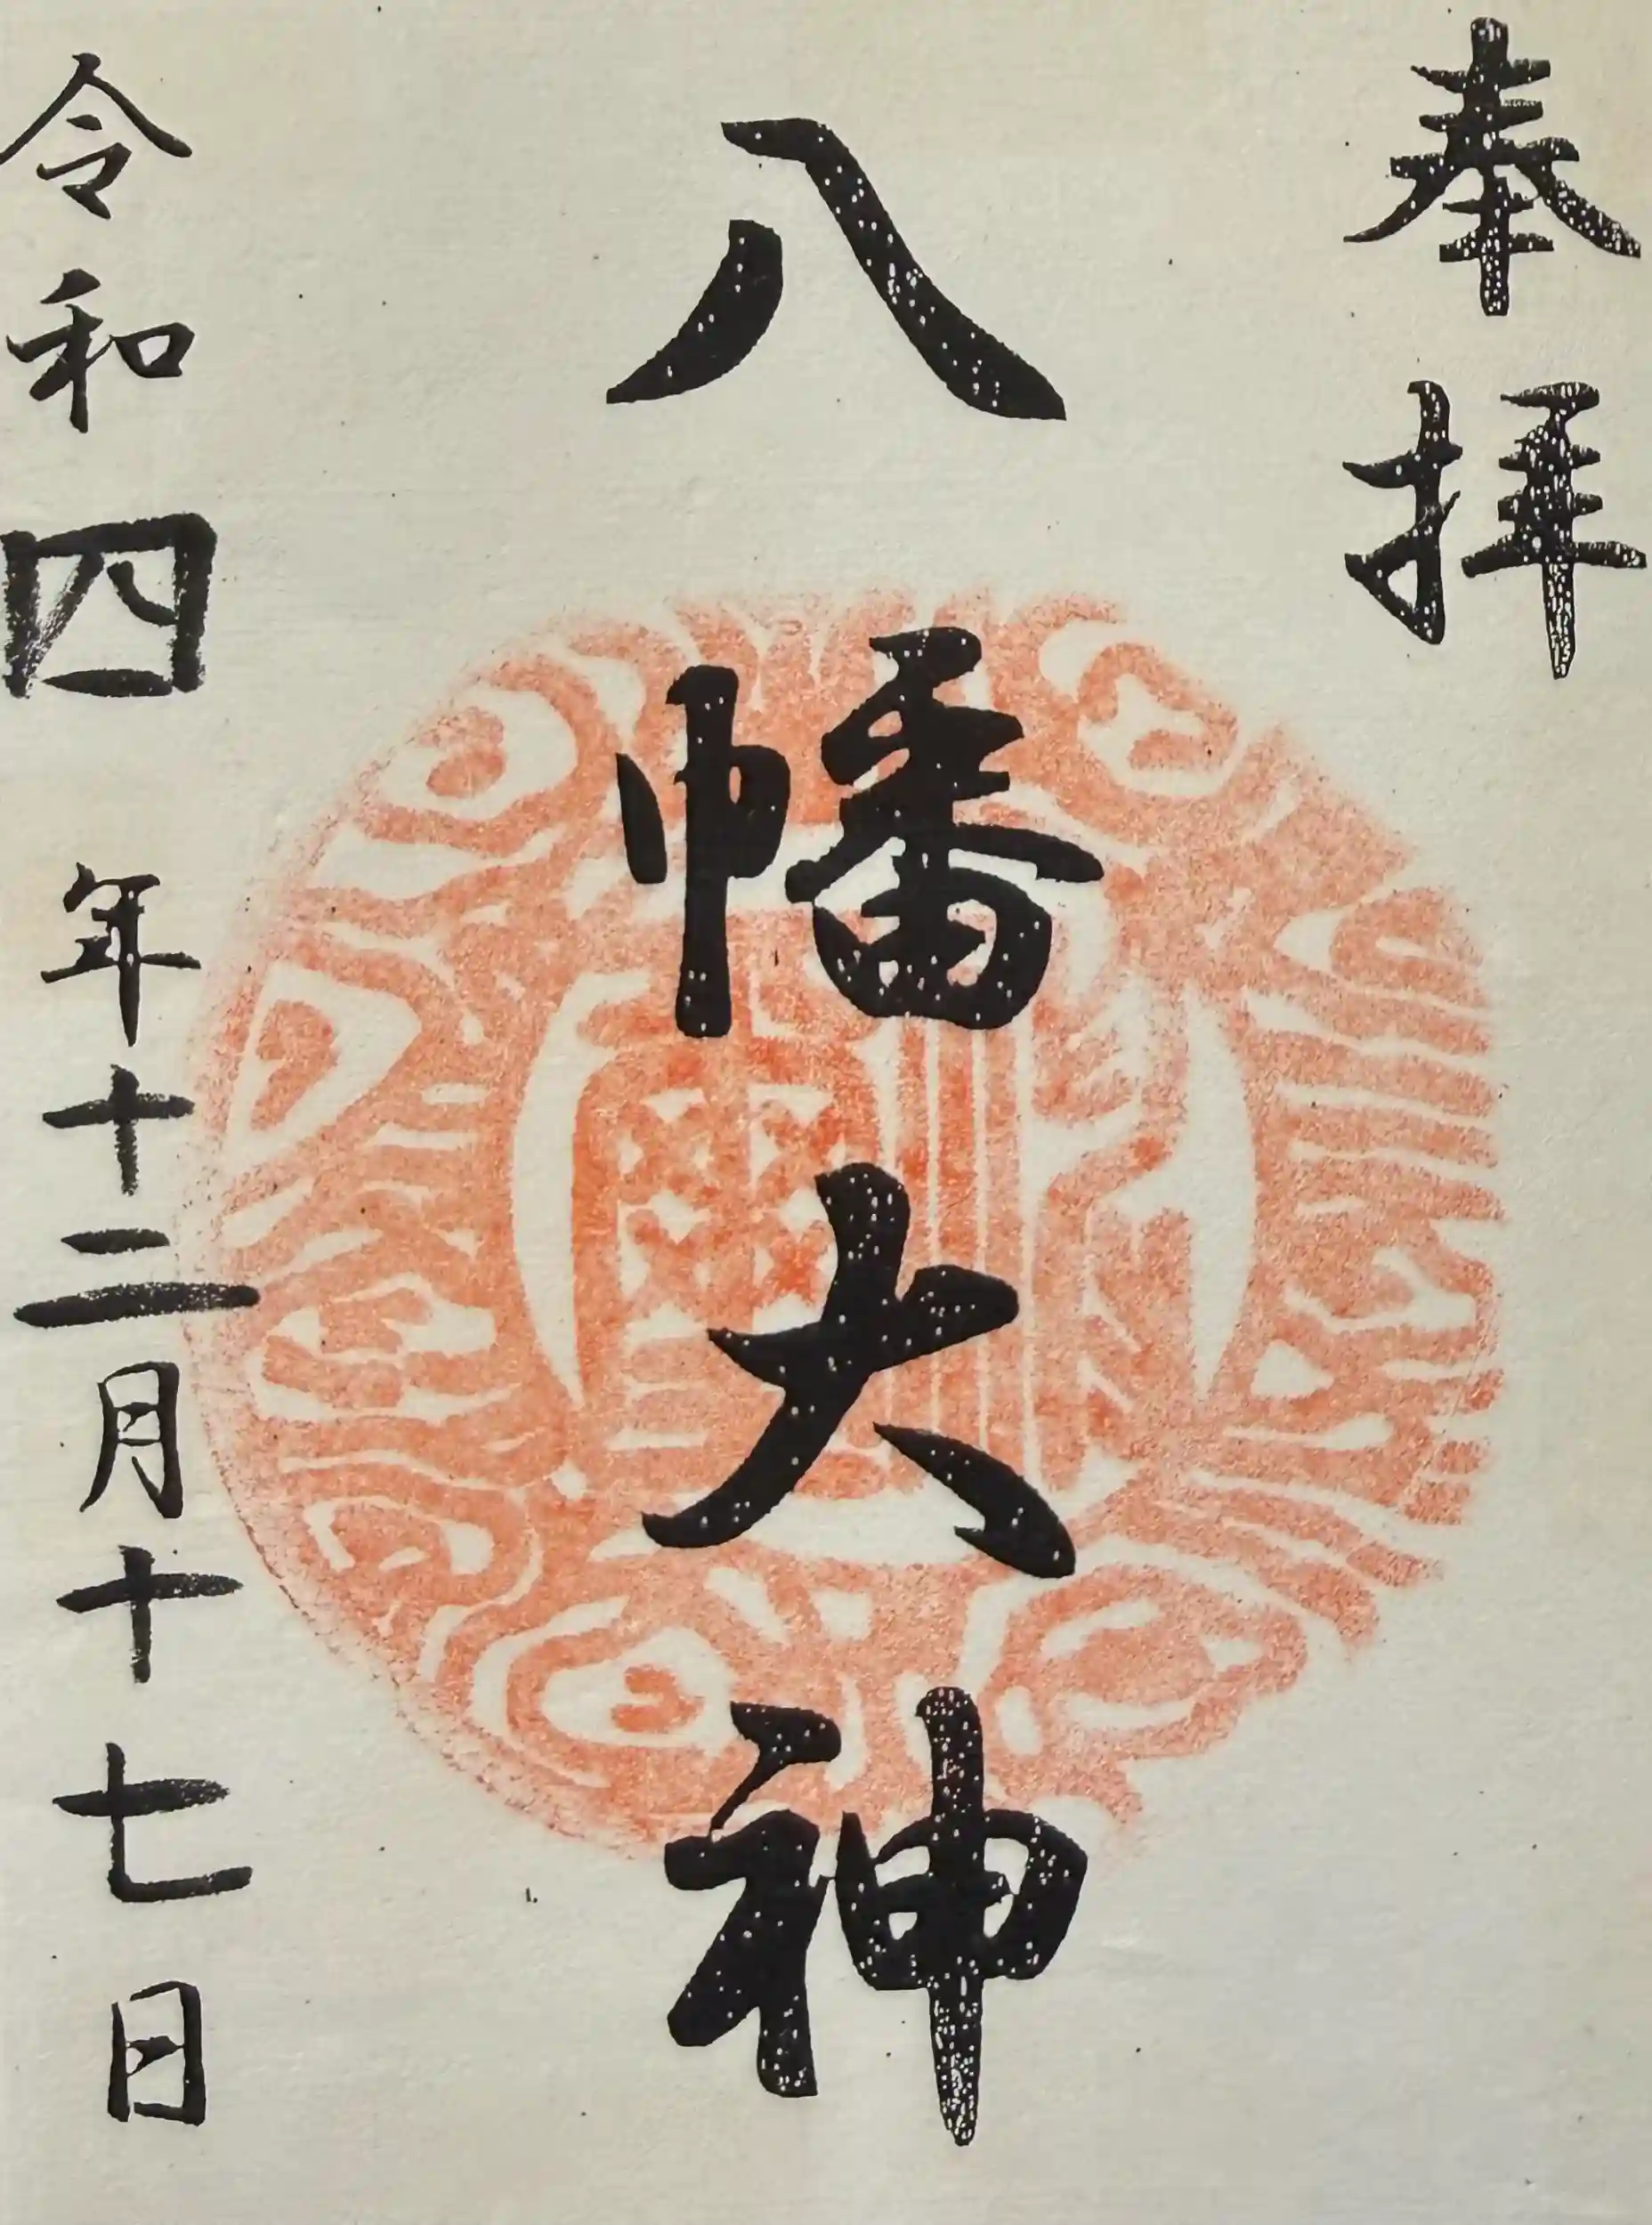 奉拝
八幡大神
令和四年十二月十七日